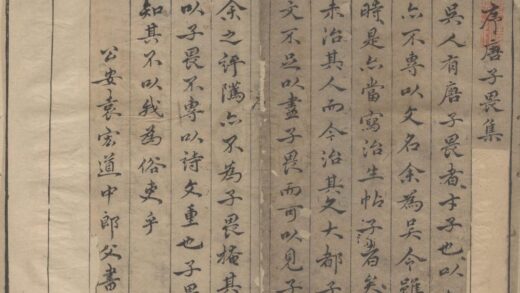 序唐子畏集
吳人有唐子畏者才子也以
亦不專以文名余為吳令雖
時是亦當寫治生帖子者矣
未治其人而今治其文大都子
文不足以盡子畏而可以見子
余之評隲亦不為子畏掩其
以子畏不專以詩文重也子畏
知其不以我為俗吏乎
公安袁宏道中郎父書